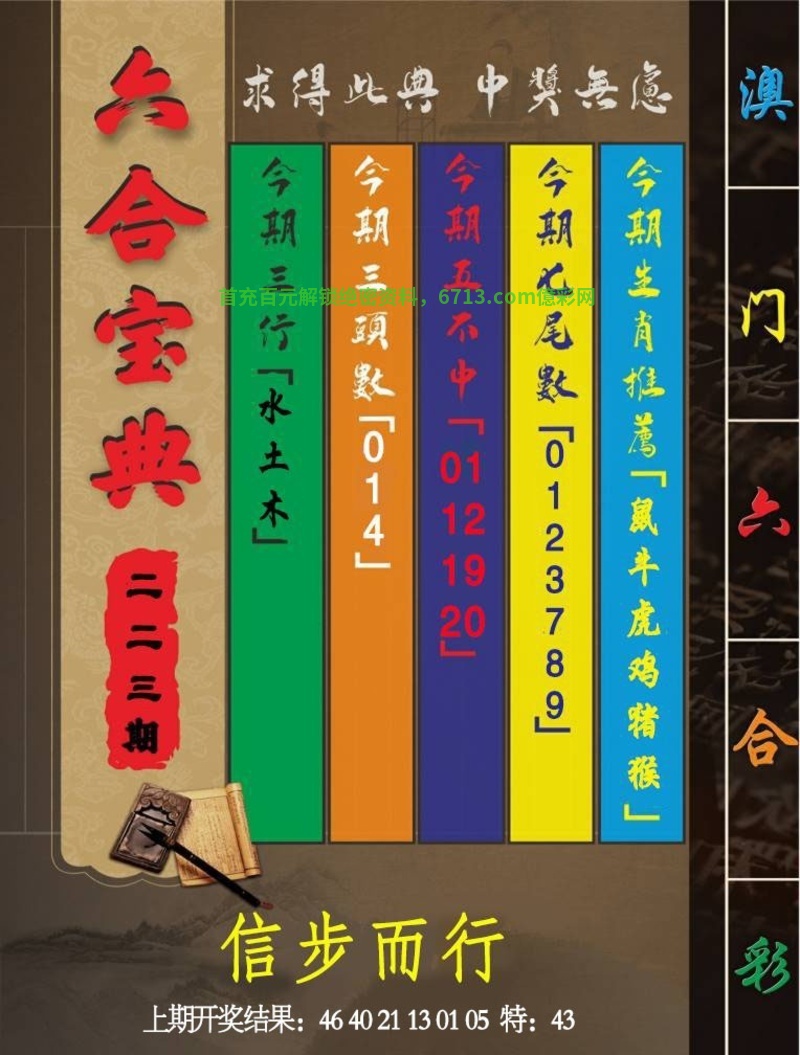 六合宝典
二二三期
求得此典 中獎無慮
今期三行「水土木」
今期三頭數「014」
今期五不中「01 12 19 20」
今期七尾數「0123789」
今期生肖推薦「鼠牛虎鸡猪猴」
首充百元解锁绝密资料，6713.com億彩网
澳门六合彩
信步而行
上期开奖结果：46 40 21 13 01 05 特：43